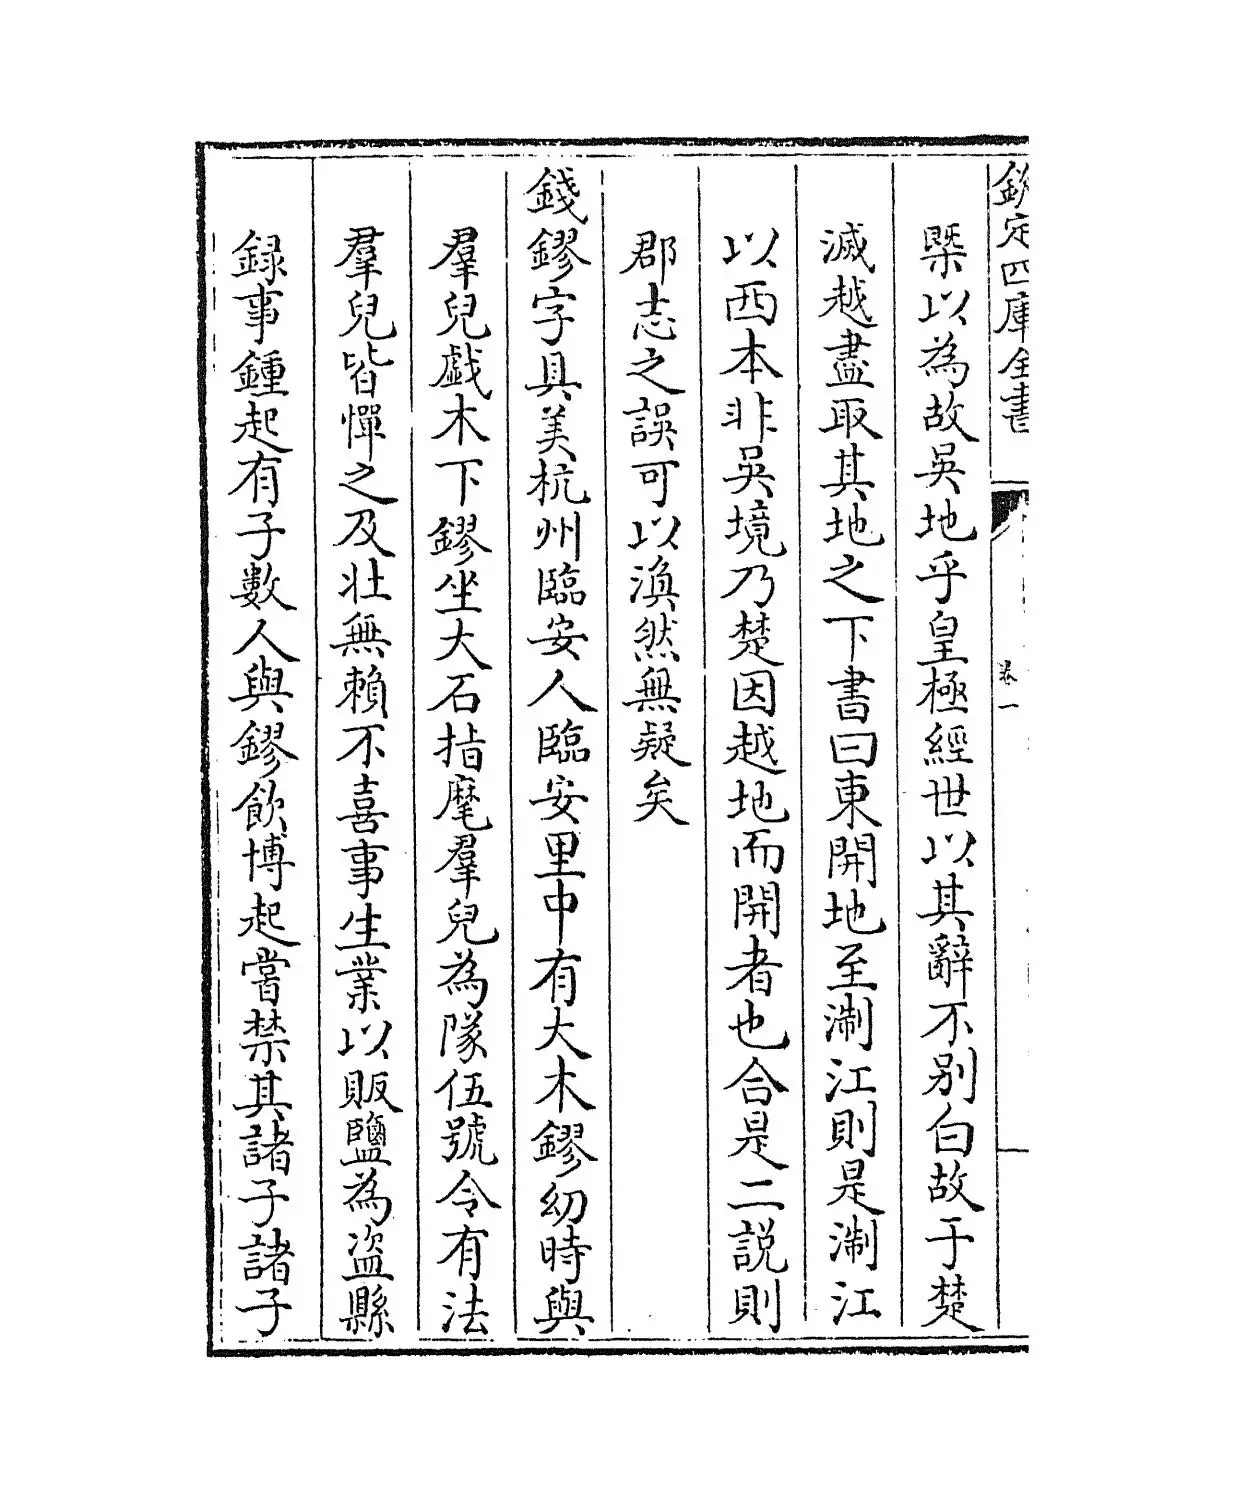 欽定四庫全書
卷一
槩以為故吳地乎皇極經世以其辭不別白故于楚
滅越盡取其地之下書曰東開地至淛江則是淛江
以西本非吳境乃楚因越地而開者也合是二說則
郡志之誤可以渙然無疑矣
錢鏐字具美杭州臨安人臨安里中有大木鏐幼時與
羣兒戲木下鏐坐大石指麾羣兒為隊伍號令有法
羣兒皆憚之及壯無賴不喜事生業以販鹽為盜縣
録事鍾起有子數人與鏐飲博起嘗禁其諸子諸子